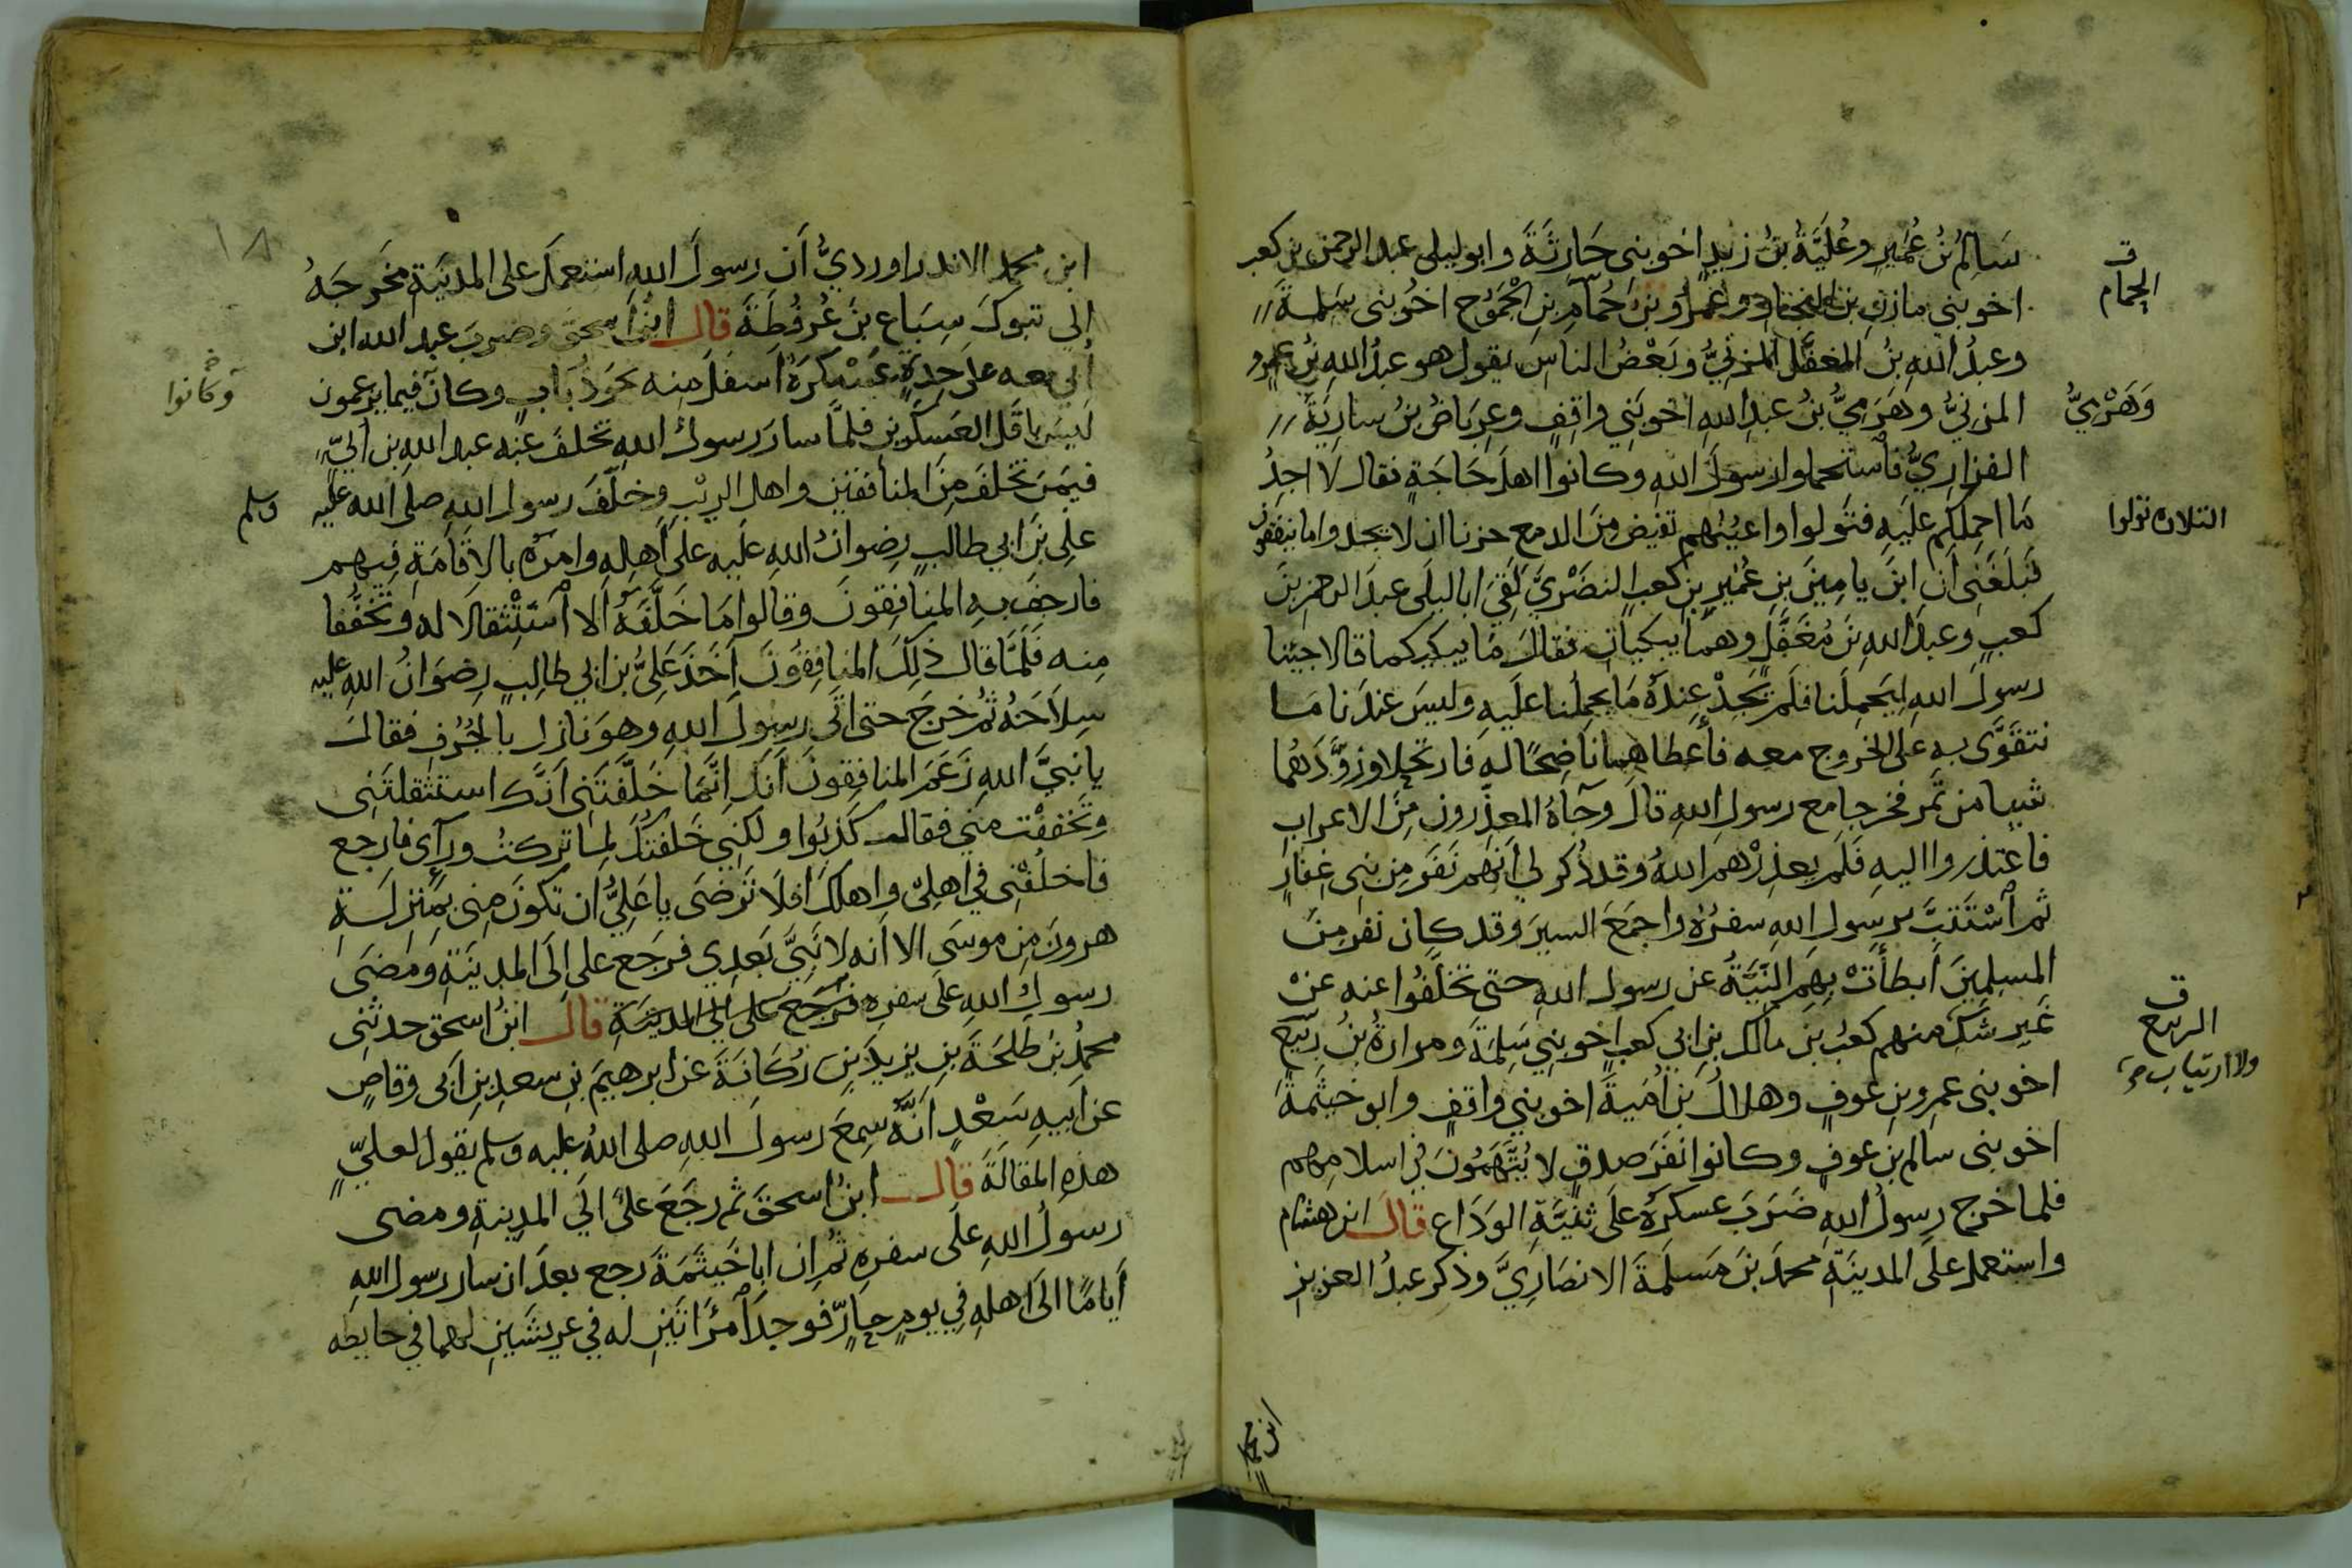 سَالِمُ بْنُ عُمَيْرٍ وعُلَيَّةُ بْنُ زيدٍ اخو بنى حَارِثَةَ وابو ليلى عبد الرحمن بن كعب
اخو بني مازن بن النجار وعمرُو بنُ حُمَامِ بنِ الْجَمُوحِ اخُو بنى سَلِمةَ
وعبدُ اللهِ بنُ المغفَّل المزنيُّ وبَعْضُ الناسِ يقول هو عبدُ اللهِ بنُ عمرٍو
المزنيُّ وهَرَمِيُّ بنُ عبدِ اللهِ اخو بَنِي واقِفٍ وعِرباضُ بنُ سارِيَةَ
الفزاريُّ فاستحملوا رسولَ اللهِ وكانوا اهلَ حَاجَةٍ فقال لَا اجِدُ
مَا احمِلكم عليَهِ فتَولوا واعيُنهم تفيض مِنَ الدمع حزنا ان لا يجدوا ما ينفقون
فبَلَغَنِى اَن ابنَ يامينَ بنِ عُمَيرِ بنِ كعبٍ النضَرْيَّ لَقِيَ ابا ليلَى عبدَ الرحمنِ بنَ
كعبٍ وعبدَ اللهِ بنَ مُغَفَّلٍ وهما يبكيان فقالَ مَا يبكيكما قالا جئنا
رسولَ اللهِ ليَحمِلَنا فلَم نَجِدْ عِندَهُ مَا يحمِلُنا علَيهِ وليسَ عندَنا مَا
نتقَوَّى بهِ على الخروج معه فأعطاهما ناضِحًا له فارتحلا وزوَّدَهُما
شيا من تَمر فخرجا مع رسولِ اللهِ قالَ وجآءَ المعذِّرون مِنَ الاعرابِ
فاعتذروا اليهِ فَلَم يعذِرْهم اللهُ وقد ذُكر لي أنهم نفَر مِن بنى غِفَارٍ
ثم اسْتَتَبَّ برسولِ اللهِ سفرُهُ واجمَعَ السيرَ وقد كان نفر مِنَ
المسلمِينَ ابطأَتْ بهِمِ النِّيَّةُ عن رسول اللهِ حتى تخلَّفُوا عنه عنْ
غَيرِ شكٍّ منهم كعبُ بنُ مالك بنِ ابي كعبٍ اخو بني سَلِمَةَ ومرارةُ بنُ ربيع
اخو بنى عمرِو بنِ عوفٍ وهلالُ بنُ أمَيةَ اخو بني واقفٍ وابو خيثمةَ
اخو بنى سالم بن عوفٍ وكانوا نفَر صدقٍ لا يُتَّهَمُونَ في اسلامِهم
فلما خرج رسولُ اللهِ ضَرَبَ عسكرَهُ علَى ثنيَّةِ الوَدَاعِ قالَ ابن هشام
واستعمل على المدينَةِ محمدَ بنَ مَسلَمَةَ الانصَارِيَّ وذكر عبدُ العزيز
الحمام
وَهَرْمِيُّ
تولوا
الربيع
ولا ارتيابٍ
ابن محمد
ابن محمد الاندراورديُّ اَن رسولَ اللهِ استعمَلَ على المدينَة مخرَجَهُ
إلي تبوكَ سِبَاع بنَ عُرفُطَةَ قالَ ابنُ اسحق وضربَ عبد الله ابن
أُبي معه على حِدَةٍ عَسْكرَهُ اَسفَلَ مِنه نحوَ ذُبَابٍ وكانَ فيما يزعمون
لَيسَ باقَلِّ العَسكَرَينِ فلمَّا سارَ رسولُ اللهِ تخلفَ عنه عبد اللهِ بن أُبيّ
فيمَن تخلفَ مِنَ المنافقين واهلِ الريْبِ وخلَّفَ رسول اللهِ صلى الله عليه
علِي بنَ ابي طالبٍ رِضوانُ اللهِ علَيهِ علَى أهلِهِ وامرَهُ بالاِقَامَةِ فيهم
فارجفَ بهِ المنافِقونَ وقالوا مَا خَلَّفَهُ اَلا اسْتِثْقالا له وتخفُّفا
مِنه فلَمَّا قال ذلِكَ المنافِقُونَ اَخَذَ علِيُّ بن ابي طالِبٍ رِضوانُ اللهِ عليه
سِلاحَهُ ثُم خرجَ حتى اتَى رسولَ اللهِ وهو نازل بالجُرُفِ فقالَ
يا نبيَّ اللهِ زعَمَ المنافِقونَ اَنكَ اِنَّما خَلَّفتَنى اَنَّكَ استثقلتَنِى
وتخففْت منى فقال كَذبُوا ولكنِي خَلفتكَ لِما تركتُ ورآى فارجع
فاخلفْنِى في اهلِي واهلكَ افلَا تَرضَى يا عَلِيُّ ان تكونَ مِنى بمنزِلَةِ
هرونَ مِن موسَى الا انه لا نَبيَّ بَعدِي فرجَع على اِلَى المدينَةِ وَمَضَى
رسولُ اللهِ علَى سفرِه فرجَع على الي المدينَةِ قالَ ابنُ اسحق حدثنِى
محمدُ بنُ طلحَةَ بنِ يزيدَ بنِ رُكَانَةَ عَن ابرهيمَ بن سعدِ بنِ ابى وقاصٍ
عن ابيهِ سَعْدٍ اَنَّهُ سَمِعَ رسولَ اللهِ صلى اللهُ عليه وسلم يقول لعليّ
هذهِ المقالَةَ قالَ ابنُ اسحقَ ثم رجَعَ علىٌّ الَي المدينةِ ومضى
رسولُ اللهِ علَى سفرِهِ ثُم ان ابا خَيثَمَةَ رجع بعدَ ان سار رسول اللهِ
أيامًا الَى اَهلهِ فِي يومٍ حارٍّ فوجدَ امرَاتَينِ له في عريشَينِ لهما في حايطه
وكانوا
وسلم
١٨